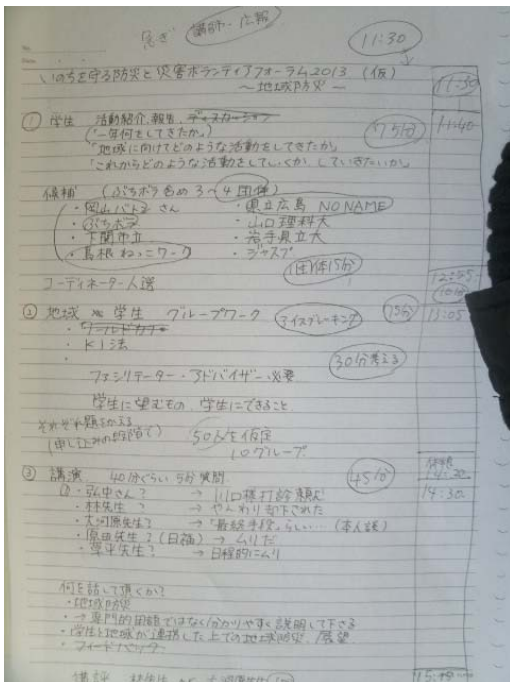 急ぎ 講師・広報
11:30
いのちを守る防災と災害ボランティアフォーラム2013 (仮)
～地域防災～
11:30
① 学生 活動紹介、報告、ディスカーション
75分
11:40
(「一年何をしてきたか」)
「地域に向けてどのような活動をしてきたか」
「これからどのような活動をしていくか、していきたいか」
候補 (ぷちボラ含め 3～4団体)
・岡山バトン さん ・県立広島 NO NAME
・ぷちボラ ・山口理科大
・下関市立 ・岩手県立大
・島根 ねっこワーク ・ジャスプ
1団体15分
コーディネーター人選
12:55
10分
② 地域 × 学生 グループワーク アイスブレーキング 75分 13:05
・ワールドカフェ
・KJ法
・
30分考える
ファシリテーター・アドバイザー 必要
学生に望むもの、学生にできること
それぞれ題をかえる
(申し込みの段階で)
50人を仮定
10グループ
休憩
14:20
③ 講演 40分ぐらい 5分質問 45分
14:30
・弘中さん？ →
・林先生？ → やんわり却下された
・大河原先生？ → 「最終手段」らしい… (本人談)
・原田先生？ (日福) → ムリだ
→ 日程的にムリ
何を話して頂くか？
・地域防災
・→専門的用語ではなく分かりやすく説明して下さる
・学生と地域が連携した上での地域防災、展望
・フィードバック
講評 林先生